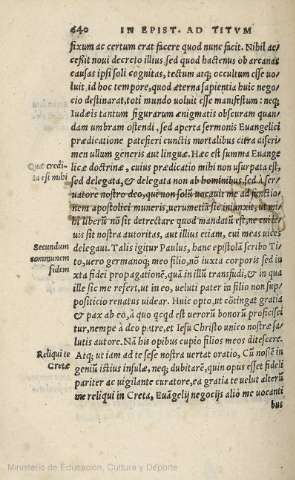 640 IN EPIST. AD TITVM
fixum ac certum erat facere quod nunc facit. Nihil ac
cessit noui decreto illius, sed quod hactenus ob arcanas
causas ipsi soli cognitas, tectum atq; occultum esse uo
luit, id hoc tempore, quod æterna sapientia huic nego
cio destinarat, toti mundo uoluit esse manifestum: neq;
Iudæis tantum figurarum ænigmatis obscuram quan
dam umbram ostendi, sed aperta sermonis Euangelici
prædicatione patefieri cunctis mortalibus citra discri
men ullum generis aut linguæ. Hæc est summa Euange
Quæ credi-
ta est mihi
licæ doctrinæ, cuius prædicatio mihi non usurpata est,
sed delegata, & delegata non ab hominibus sed à ser
uatore nostro deo, qui non solũ uocauit me ad functio
nem apostolici muneris, uerumetiã sic iniunxit, ut mi
hi liberũ nõ sit detrectare quod mandatũ est, ne
uis sit nostra autoritas, aut illius etiam, cui meas uices
Secundum
communem
fidem
delegaui. Talis igitur Paulus, hanc epistolã scribo Ti
to, uero germanoq; meo filio, nõ iuxta corporis sed iu
xta fidei propagationẽ, quã in illũ transfudi, & in qua
ille sic me refert, ut in eo, ueluti pater in filio non sup
positicio renatus uidear. Huic opto, ut cõtingat gratia
& pax ab eo, à quo quod est uerorũ bonorũ proficisci
tur, nempe à deo patre, et Iesu Christo unico nostræ sa
lutis autore. Nã his opibus cupio filios meos ditescere.
Reliqui te
Cretæ
Atq; ut iam ad te sese nostra uertat oratio, Cũ nossẽ in
geniũ istius insulæ, neq; dubitarẽ, quin opus esset fideli
pariter ac uigilante curatore, ea gratia te uelut alterũ
me reliqui in Creta, Euãgelij negocijs aliò me uocanti
bus
Ministerio de Educación, Cultura y Deporte